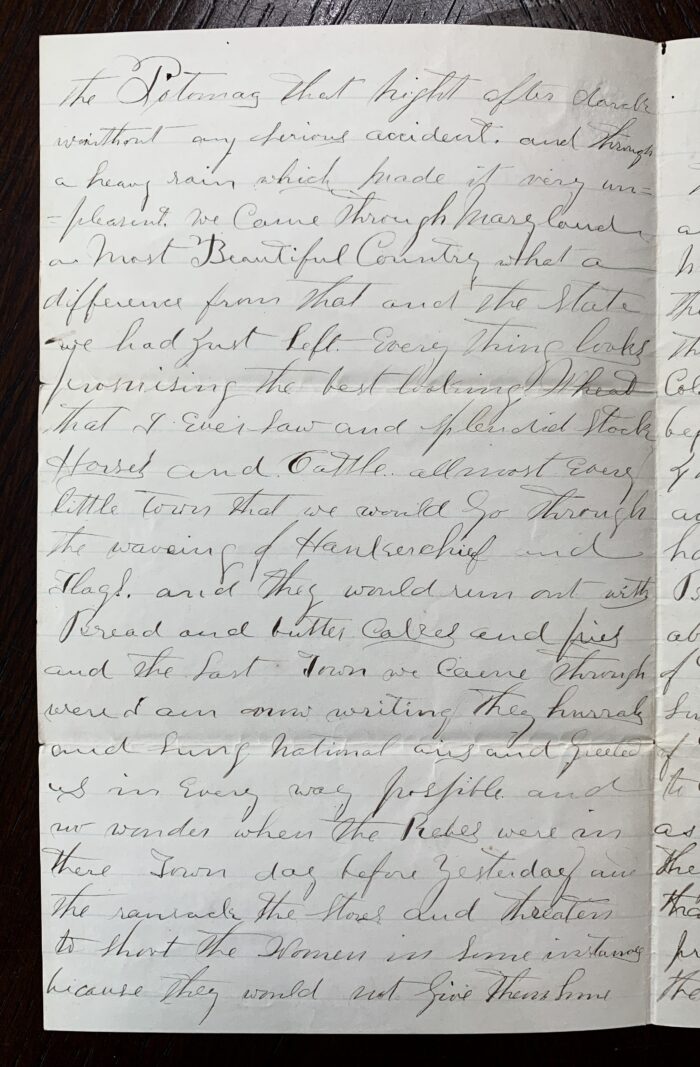 the Potomag that night after darck
winthout any serious accident. and through
a heavy rain which made it very un=
=pleasent. we Came through Maryland
a Most Beautiful Country what a
difference from that and the State
we had just left. Every thing looks
promising the best looking Wheat
that I Ever Saw and splendid Stock
Horses and Cattle. allmost Every
little Town that we would Go through
the waveing of Hankerchief and
Flags. and they would run out with
Bread and butter Cakes and pies
and the Last Town we Came through
were I am now writing they hurrah
and Sung National airs and Greeted
us in Every way possible and
no wonder when the Rebes were in
there Town day before Yesterday and
the ransack the Stores and threaten
to Shoot the Women in Some instances
because they would not Give them Some
a
the
Col
as
the
the